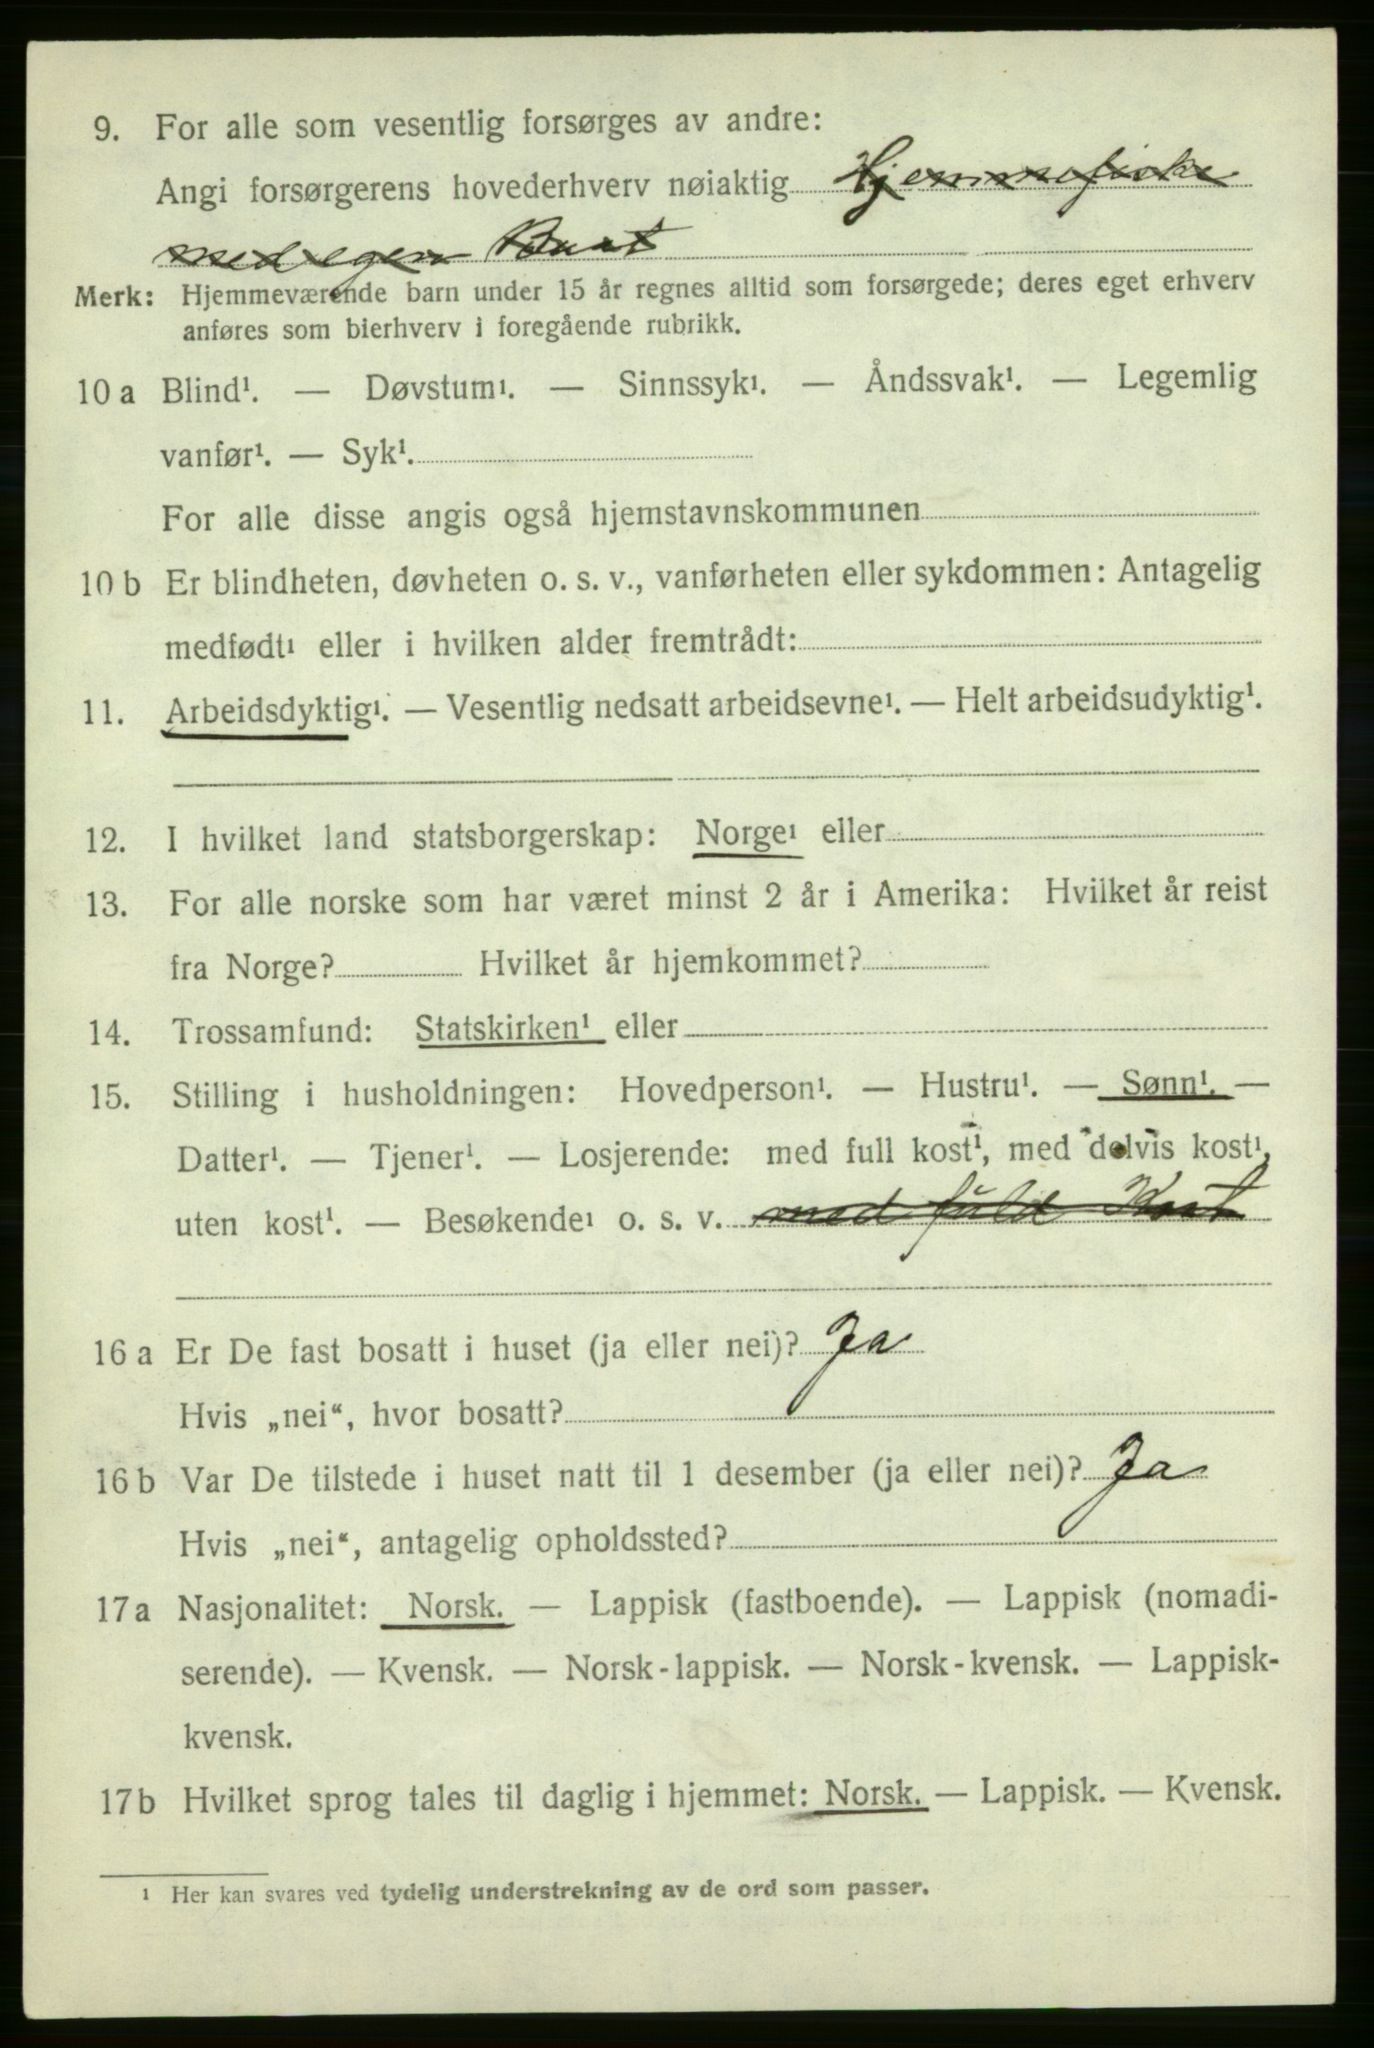 9. For alle som vesentlig forsørges av andre:
Angi forsørgerens hovederhverv nøiaktig Hjemmefiske
med egen Baat
Merk: Hjemmeværende barn under 15 år regnes alltid som forsørgede; deres eget erhverv
anføres som bierhverv i foregående rubrikk.
10 a Blind¹. — Døvstum¹. — Sinnssyk¹. — Åndssvak¹. — Legemlig
vanfør¹. — Syk¹.
For alle disse angis også hjemstavnskommunen
10 b Er blindheten, døvheten o. s. v., vanførheten eller sykdommen: Antagelig
medfødt¹ eller i hvilken alder fremtrådt:
11. Arbeidsdyktig¹. — Vesentlig nedsatt arbeidsevne¹. — Helt arbeidsudyktig¹.
12. I hvilket land statsborgerskap: Norge¹ eller
13. For alle norske som har været minst 2 år i Amerika: Hvilket år reist
fra Norge? Hvilket år hjemkommet?
14. Trossamfund: Statskirken¹ eller
15. Stilling i husholdningen: Hovedperson¹. — Hustru¹. — Sønn¹. —
Datter¹. — Tjener¹. — Losjerende: med full kost¹, med delvis kost¹,
uten kost¹. — Besøkende¹ o. s. v. med fuld Kost
16 a Er De fast bosatt i huset (ja eller nei)? Ja
Hvis „nei“, hvor bosatt?
16 b Var De tilstede i huset natt til 1 desember (ja eller nei)? Ja
Hvis „nei“, antagelig opholdssted?
17 a Nasjonalitet: Norsk. — Lappisk (fastboende). — Lappisk (nomadi-
serende). — Kvensk. — Norsk-lappisk. — Norsk-kvensk. — Lappisk-
kvensk.
17 b Hvilket sprog tales til daglig i hjemmet: Norsk. — Lappisk. — Kvensk.
¹ Her kan svares ved tydelig understrekning av de ord som passer.